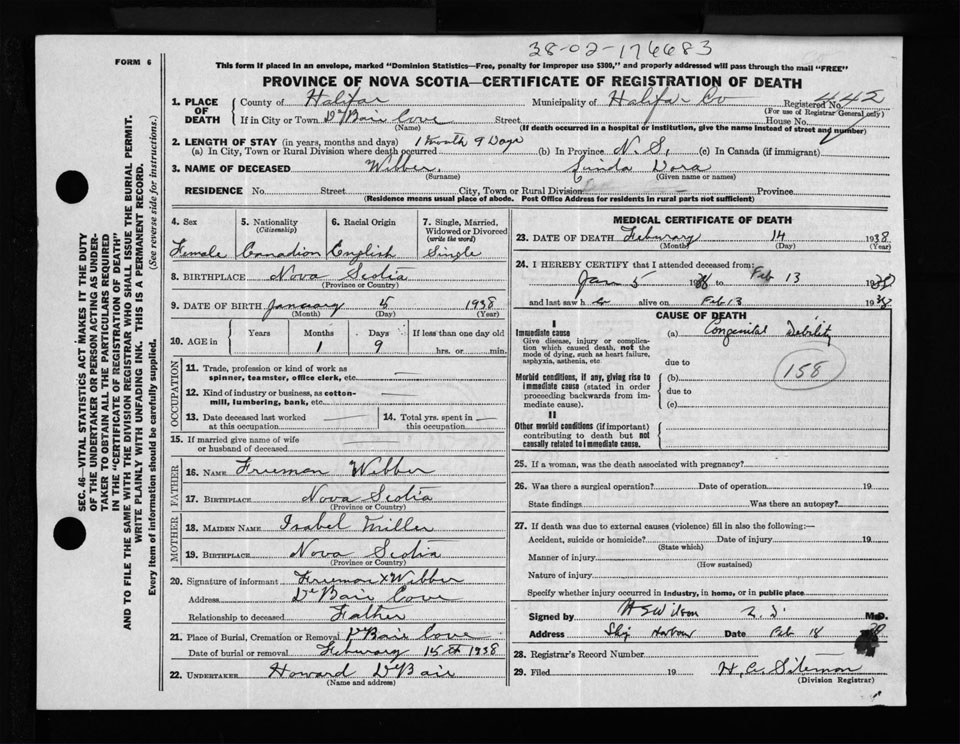 38-02-176683
FORM 6
This form if placed in an envelope, marked "Dominion Statistics—Free, penalty for improper use $300," and properly addressed will pass through the mail "FREE"
PROVINCE OF NOVA SCOTIA—CERTIFICATE OF REGISTRATION OF DEATH
1. PLACE OF DEATH
County of Halifax Municipality of Halifax Co Registered No. 442
(For use of Registrar General only)
If in City or Town D'Bair Cove Street House No.
(Name) (If death occurred in a hospital or institution, give the name instead of street and number)
2. LENGTH OF STAY (in years, months and days)
(a) In City, Town or Rural Division where death occurred 1 Month 9 Days (b) In Province N. S. (c) In Canada (if immigrant)
3. NAME OF DECEASED Wibber, Linda Dora
(Surname) (Given name or names)
RESIDENCE No. Street City, Town or Rural Division Province
(Residence means usual place of abode. Post Office Address for residents in rural parts not sufficient)
4. Sex Female
5. Nationality (Citizenship) Canadian
6. Racial Origin English
7. Single, Married, Widowed or Divorced (write the word) Single
8. BIRTHPLACE Nova Scotia
(Province or Country)
9. DATE OF BIRTH January 5 1938
(Month) (Day) (Year)
10. AGE in Years Months 1 Days 9 If less than one day old hrs. or min.
OCCUPATION
11. Trade, profession or kind of work as spinner, teamster, office clerk, etc.
12. Kind of industry or business, as cotton-mill, lumbering, bank, etc.
13. Date deceased last worked at this occupation
14. Total yrs. spent in this occupation
15. If married give name of wife or husband of deceased
FATHER
16. NAME Freeman Wibber
17. BIRTHPLACE Nova Scotia
(Province or Country)
MOTHER
18. MAIDEN NAME Isabel Miller
19. BIRTHPLACE Nova Scotia
(Province or Country)
20. Signature of informant Freeman x Wibber
Address D'Bair Cove
Relationship to deceased Father
21. Place of Burial, Cremation or Removal D'Bair Cove
Date of burial or removal Feburary 15th 1938
22. UNDERTAKER Howard D'Bair
(Name and address)
MEDICAL CERTIFICATE OF DEATH
23. DATE OF DEATH Feburary 14 1938
(Month) (Day) (Year)
24. I HEREBY CERTIFY that I attended deceased from:
Jan 5 1938 to Feb 13 1938
and last saw h er alive on Feb 13 1938
CAUSE OF DEATH
I
Immediate cause
Give disease, injury or complication which caused death, not the mode of dying, such as heart failure, asphyxia, asthenia, etc
(a) Congenital Debility
158
due to
Morbid conditions, if any, giving rise to immediate cause (stated in order proceeding backwards from immediate cause).
(b)
due to
(c)
II
Other morbid conditions (if important) contributing to death but not causally related to immediate cause.
25. If a woman, was the death associated with pregnancy?
26. Was there a surgical operation? Date of operation 19
State findings Was there an autopsy?
27. If death was due to external causes (violence) fill in also the following:—
Accident, suicide or homicide? Date of injury 19
(State which)
Manner of injury
(How sustained)
Nature of injury
Specify whether injury occurred in industry, in home, or in public place
Signed by H S Wilson M.D.
Address Ship Harbour Date Feb 18 38
28. Registrar's Record Number
29. Filed 19 H. C. Siteman
(Division Registrar)
SEC. 46—VITAL STATISTICS ACT MAKES IT THE DUTY
OF THE UNDERTAKER OR PERSON ACTING AS UNDER-
TAKER TO OBTAIN ALL THE PARTICULARS REQUIRED
IN THE "CERTIFICATE OF REGISTRATION OF DEATH"
AND TO FILE THE SAME WITH THE DIVISION REGISTRAR WHO SHALL ISSUE THE BURIAL PERMIT.
WRITE PLAINLY WITH UNFADING INK. THIS IS A PERMANENT RECORD.
Every item of information should be carefully supplied. (See reverse side for instructions.)